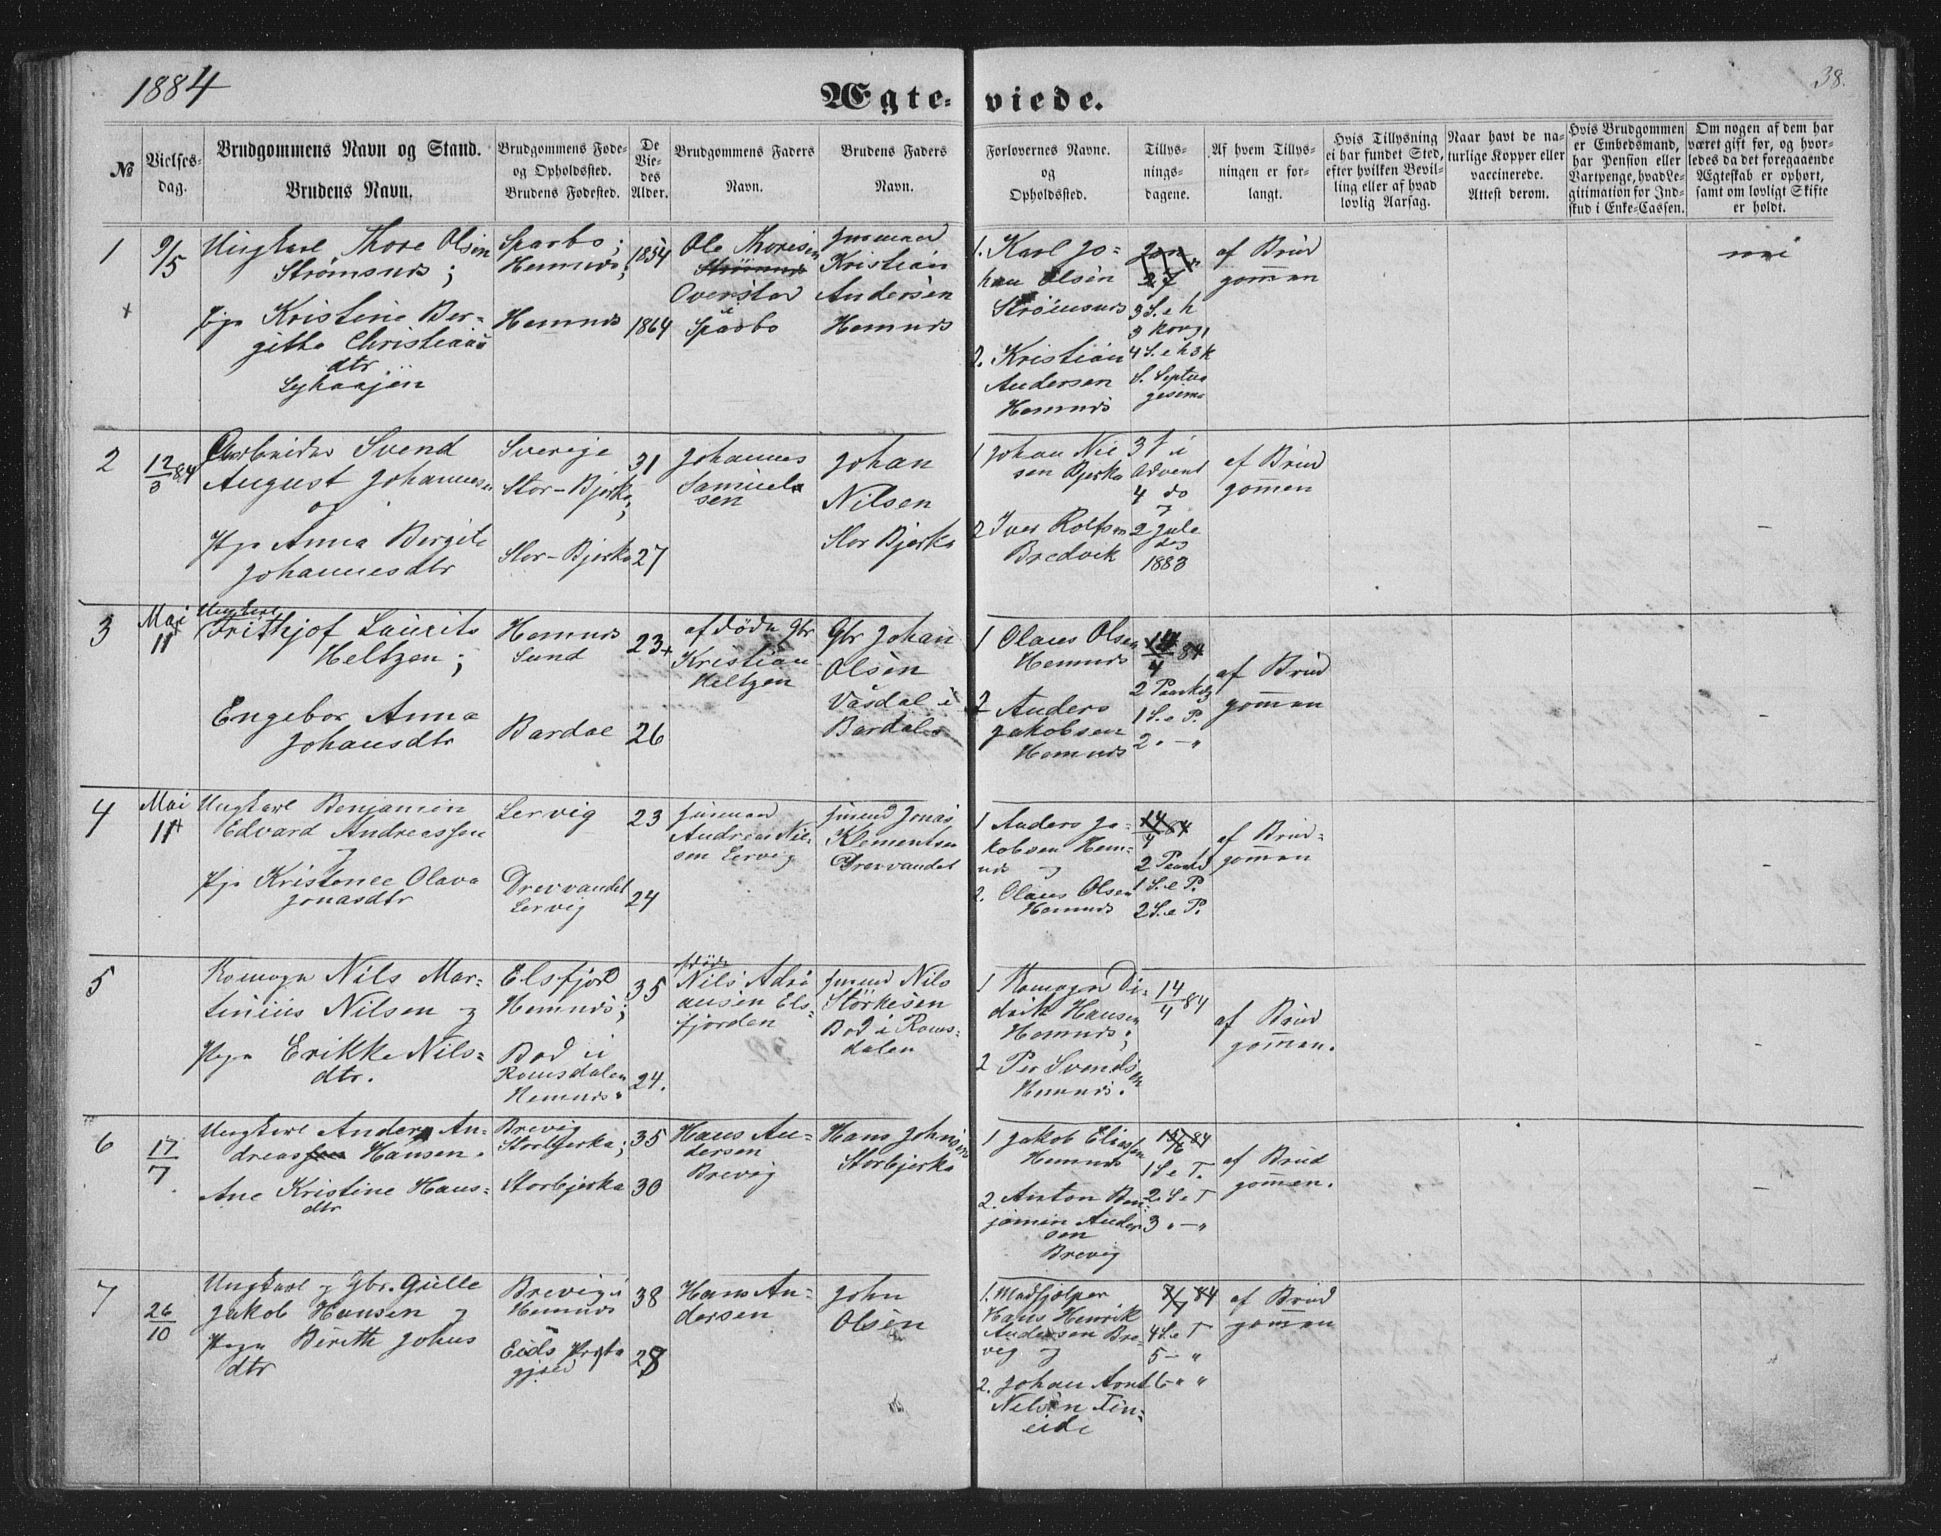 1884
Ægteviede.
38.
№
Vielsesdag.
Brudgommens Navn og Stand.
Brudens Navn.
Brudgommens Føde- og Opholdssted.
Brudens Fødested.
De Viedes Alder.
Brudgommens Faders Navn.
Brudens Faders Navn.
Forlovernes Navne. og Opholdssted.
Tillysningsdagene.
Af hvem Tillysningen er forlangt.
Hvis Tillysning ei har fundet Sted, efter hvilken Bevilling eller af hvad lovlig Aarsag.
Naar havt de naturlige Kopper eller vaccinerede. Attest derom.
Hvis Brudgommen er Embedsmand, har Pension eller Vartpenge, hvad Legitimation for Indskud i Enke-Cassen.
Om nogen af dem har været gift før, og hvorledes da det foregaaende Ægteskab er ophørt, samt om lovligt Skifte er holdt.
1
9/5
Ungkarl Thore Olsen
Strømsnes;
Kristine Ber-
gitte Christians
dtr
Sparbo;
Hemnes;
Hemnes
1854
1864
Ole Thoresen
Overstad
i
Sparbo
Kristian
Andersen
Hemnes
1. Karl Jo-
han Olsen
Strømsnes
2. Kristian
Andersen
Hemnes
3 S. e h
3 kong,
4 S. e h 3 k
S. Septua
gesima
af Brud
gommen
nei
2
12/3 84
Arbeider Svend
August Johannesen
og
Pige Anna Bergite
Johannesdtr
Sverige
Stor-Bjerka;
Stor-Bjerka
31
27
Johannes
Samuel
sen
Johan
Nilsen
Stor Bjerka
1 Johan Nil
sen Bjerka
2 Iver Rolfsen
Bredvik
3 S i
Advent
4 do
2 Jule
dag
1883
af Brud
gommen
–
3
Mai
11
Ungkarl
Frithjof Laurits
Heltzen;
Engebor Anna
Johansdtr
Hemnes
Sund
Bardal
23
26
afdøde Gbr
Kristian
Heltzen
Gbr Johan
Olsen
Vasdal i
Bardal
1 Olaus Olsen
Hemnes
2 Anders
Jakobsen
Hemnes
14/4 84
2 Paaskdg
1 S. e P.
2 " – "
af Brud
gommen
–
4
Mai
11
Ungkarl Benjamin
Edvard Andreassen
og
Pige Kristence Olava
Jonasdtr
Lervig
Drevvandet
Lervig
23
24
Andreas Nil-
sen Lervig
Jonas
Klementsen
Drevvandet
1 Anders Ja-
kobsen Hem-
nes og
2. Olaus Olsen
Hemnes
14/4 84
2 Paaskd
1 S. e P.
2 S. e P.
af Brud-
gommen
–
5
Nils Mar-
tinius Nilsen og
Pige Erikke Nils-
dtr.
Elsfjord
Hemnes;
Bod i
Romsdalen
Hemnes.
35
24.
Nils Adri
ansen Els-
fjorden
Nils
Størkesen
Bod i Roms-
dalen
1 Di-
drik Hansen
Hemnes;
2 Per Svends
en
Hemnes.
14/4 84
af Brud
gommen.
–
6
17/7
Ungkarl Anders An-
dreas Hansen.
Ane Kristine Hans-
dtr
Brevig
Storbjerka;
Storbjerka
35
30
Hans An-
dersen
Brevig
Hans Johnsen
Storbjerka
1 Jakob Eliassen
Hemnes
2. Anton Ben-
jamin Ander
sen
Brevig
1 S e T.
2 S e T
3 " – "
af Brud
gommen.
–
7
26/10
Ungkarl og Gbr. Gulle
Jakob Hansen og
Pige Berith Johns
dtr
Brevig i
Hemnes
Eids Præste
gjæld
38
28
Hans An-
dersen
John
Olsen
1. Madhjælper
Hans Henrik
Andersen Bre-
vig og
2. Johan Arnt
Nelsen Fin-
eide
7/7 84
4 S. e T
5 – "
6 – " "
af Brud
gommen
–